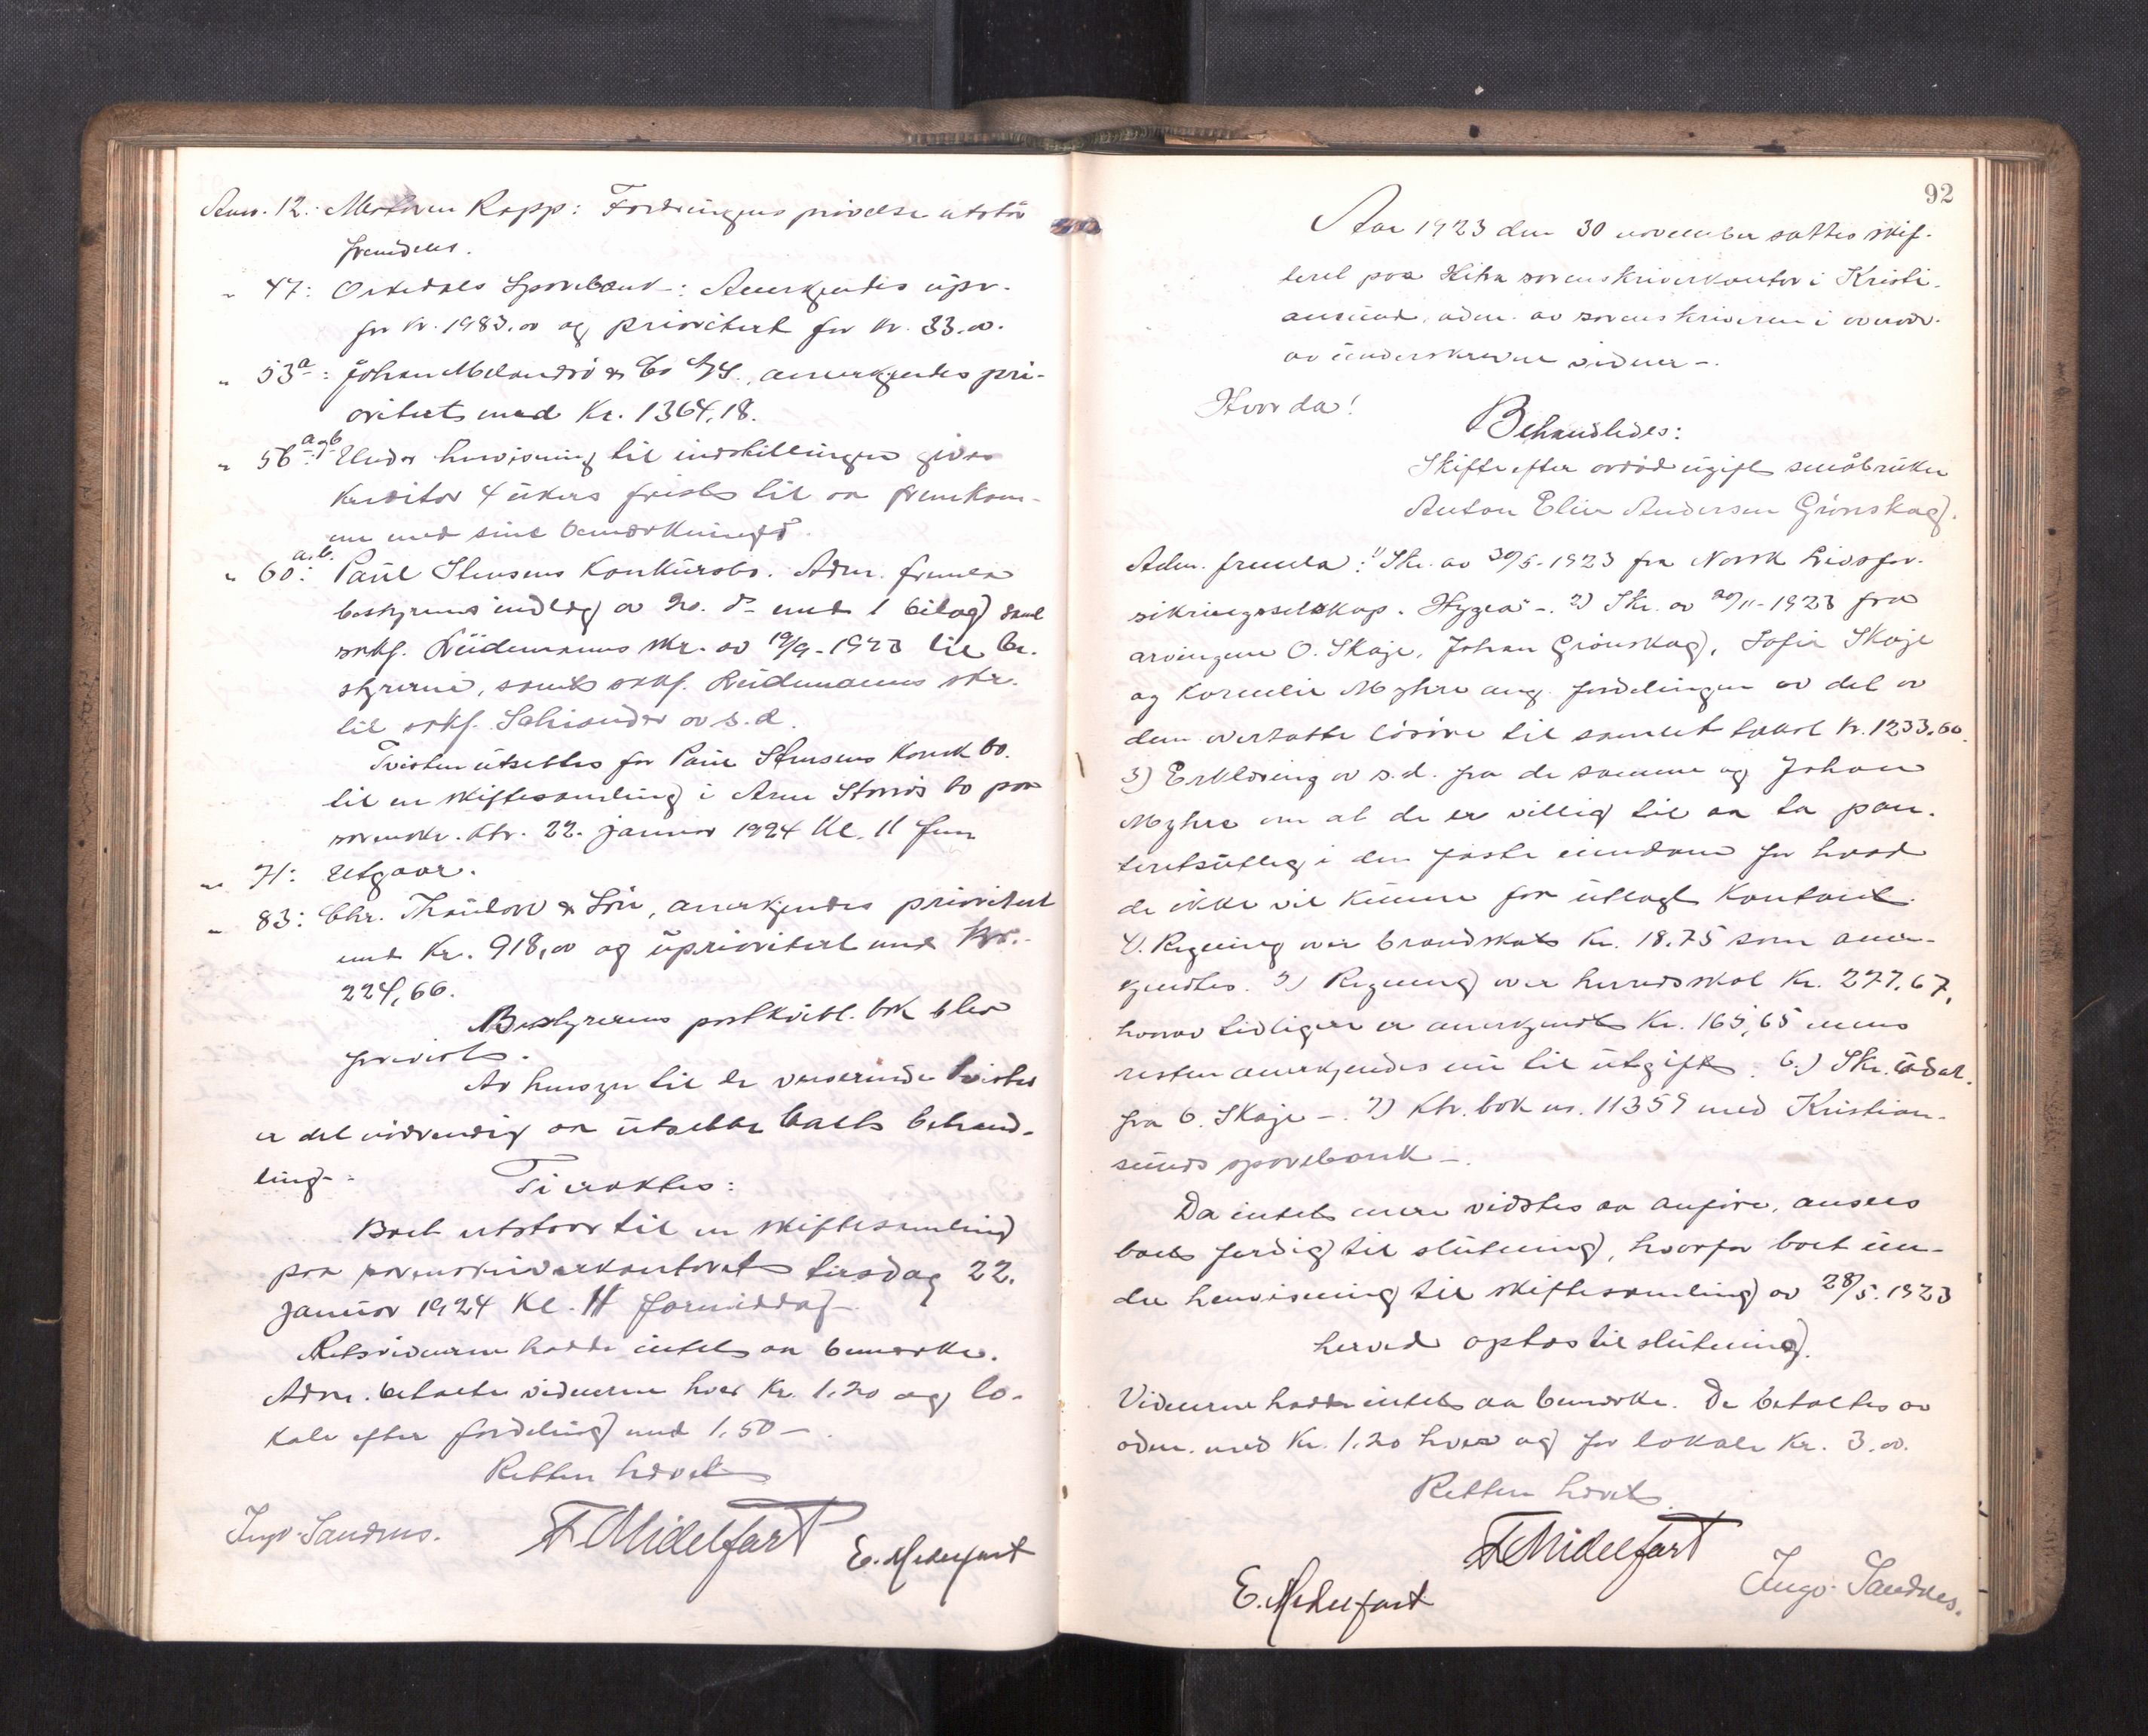 Anm. 12: Mathren Rapp: Fordringens prøvelse utstår
fremdeles.
" 47: Orkedals Sparebank: Anerkjendes upr.
for kr. 1983.00 og prioritert for kr. 33.00.
" 53a: Johan Melandsø & Co A/S, anerkjendes pri-
oritert med Kr. 1364,18.
" 56 a og b: Under henvisning til indstillingen gives
kreditor 4 ukers frist til aa fremkom-
me med sine bemerkninger.
" 60 a.b.: Paul Stensens Konkursbo. Adm. fremla
bestyrerens indlæg av 20. ds med 1 bilag samt
sakf. Lüdemanns skr. av 19/9-1923 til be-
styreren, samt sakf. Lüdemanns skr.
til sakf. Schiander av s.d.
Tvisten utsettes for Paul Stensens Konk bo.
til en skiftesamling i Arne Storrøs bo paa
sorenskr. ktr. 22. januar 1924 Kl. 11 fm
" 71: Utgaar.
" 83: Chr. Thaulow & Søn, anerkjendes prioritert
med Kr. 918,00 og uprioritert med Kr.
224,66.
Bestyrerens postkvitt. bok blev
forevist.
Av hensyn til de verserende tvister
er det nødvendig aa utsette boets behand-
ling.
Ti eraktes:
Boet utstaar til en skiftesamling
paa sorenskriverkontoret tirsdag 22.
januar 1924 Kl. 11 formiddag.
Retsvidnerne hadde intet aa bemerke.
Adm. betalte vidnerne hver Kr. 1.20 og lo-
kale efter fordeling med 1.50 –.
Retten hævet
Ingv. Sandnes. F Midelfart E. Midelfart
92
Aar 1923 den 30 november sattes skif-
teret paa Hitra sorenskriverkontor i Kristi-
ansund, adm. av sorenskriveren i overvær
av underskrevne vidner –.
Hvor da!
Behandledes:
Skifte efter avdød ugift småbruker
Anton Elias Andersen Grønskag.
Adm. fremla: 1) Skr. av 30/5-1923 fra Norsk Livsfor-
sikringsselskap "Hygea" –. 2) Skr. av 20/11-1923 fra
arvingene O. Skaje, Johan Grønskag, Sofie Skaje
og Kornelie Myhre ang. fordelingen av det av
dem overtatte løsøre til samlet takst kr. 1233,60.
3) Erklæring av s.d. fra de samme og Johan
Myhre om at de er villig til aa ta pan-
teretsutleg i den faste eiendom for hvad
de ikke vil kunne faa utlagt kontant.
4. Regning over brandskat Kr. 18.75 som aner-
kjendtes. 5) Regning over herredsskat Kr. 277,67,
hvorav tidligere er anerkjendt Kr. 165,65 mens
resten anerkjendes nu til utgift. 6.) Skr. udat.
fra O. Skaje –. 7) Ktr. bok nr. 11359 med Kristian-
sunds sparebank –.
Da intet mere vidstes aa anføre, ansees
boet ferdig til slutning, hvorfor boet un-
der henvisning til skiftesamling av 28/5. 1923
herved optas til slutning.
Vidnerne hadde intet aa bemerke. De betaltes av
adm. med Kr. 1.20 hver og for lokale Kr. 3.00.
Retten hævet.
F Midelfart
E. Midelfart Ingv. Sandnes.